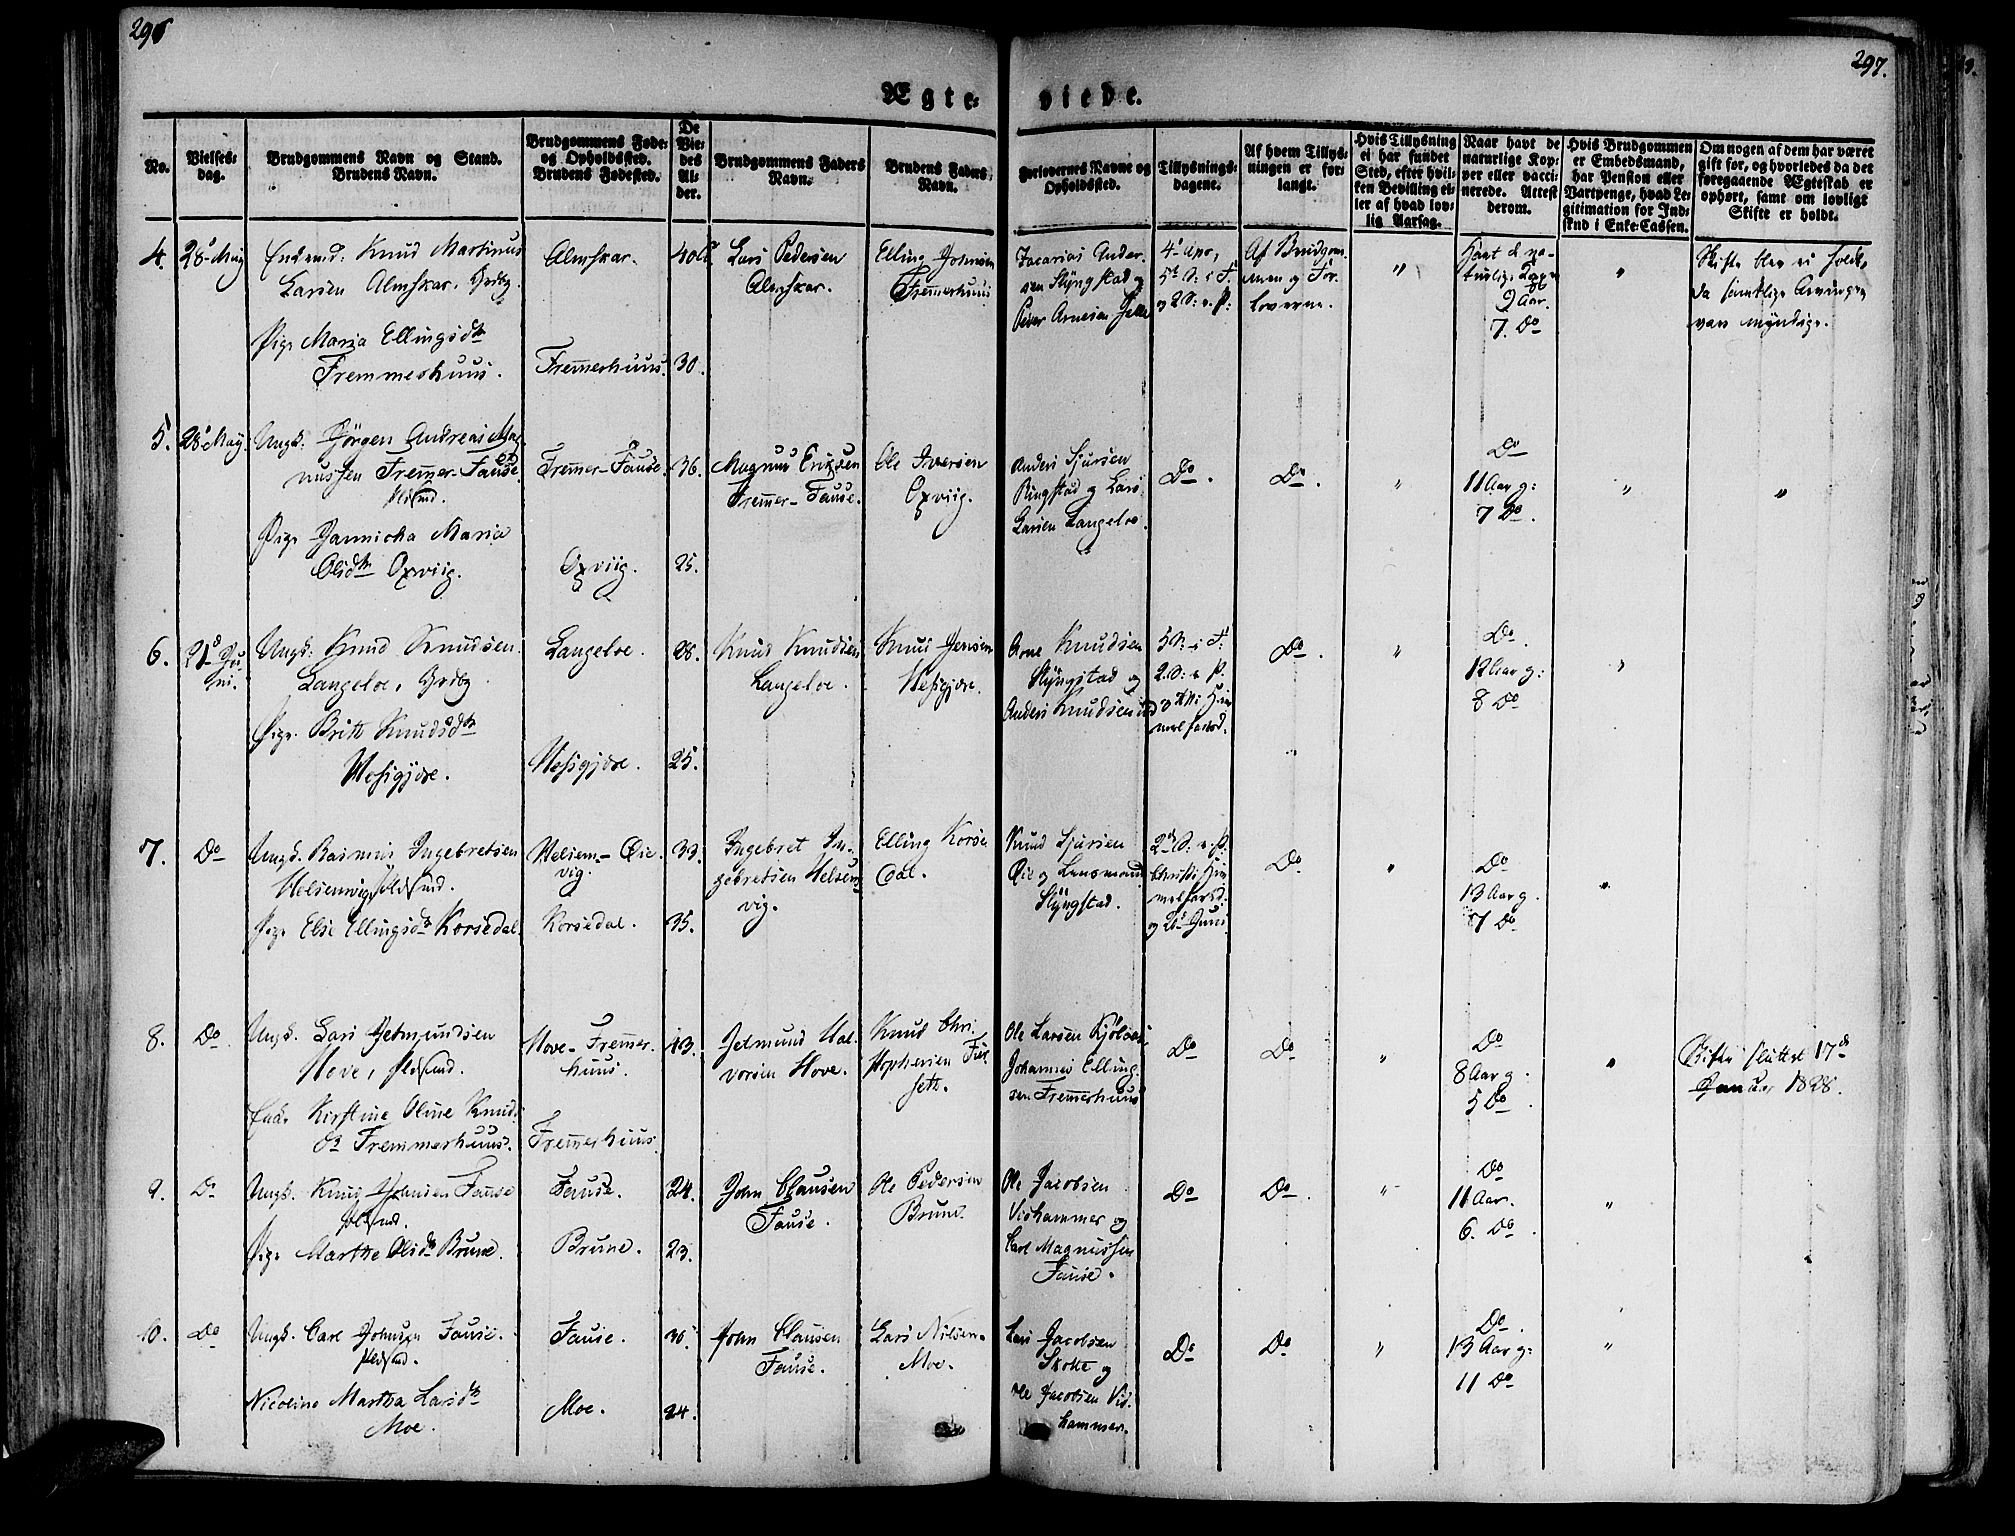 296
297.
Ægte-
viede.
No.
Vielses-
dag.
Brudgommens Navn og Stand.
Brudens Navn.
Brudgommens Føde-
og Opholdssted.
Brudens Fødested.
De
Vie-
des
Al-
der.
Brudgommens Faders
Navn.
Brudens Faders
Navn.
Forlovernes Navne og
Opholdssted.
Tillysnings-
dagene.
Af hvem Tillys-
ningen er for-
langt.
Hvis Tillysning
ei har fundet
Sted, efter hvil-
ken Bevilling el-
ler af hvad lov-
lig Aarsag.
Naar havt de
naturlige Kop-
per eller vacci-
nerede. Attest
derom.
Hvis Brudgommen
er Embedsmand,
har Pension eller
Vartpenge, hvad Le-
gitimation for Ind-
skud i Enke-Cassen.
Om nogen af dem har været
gift før, og hvorledes da det
foregaaende Ægteskab er
ophørt, samt om lovligt
Skifte er holdt.
4.
28 May
Enkemd: Knud Martinus
Larsen Almskar. Grdbg.
Pige Maria Ellingsdtr
Fremmerhuus.
Almskar.
Fremmerhuus.
40
30.
Lars Pedersen
Almskar.
Elling Johnsen
Fremmerhuus
Zacarias Ander-
sen Slyngstad og
Peder Arnesen
4' Apr,
5te S: e F.
og 2 S: e. P:
Af Brudgom-
men og For-
loverne.
"
Havt d na-
turlige
9 Aar.
7. Do
"
Skifte blev ei holdt,
da samtlige Arvinger
vare myndige.
5.
28' May.
Ungk. Jørgen Andreas Mag-
nussen Fremmer-Fause.
Pladsmd.
Pige Jannicka Maria
Olsdtr Oxviig.
Fremmer-Fause.
Oxviig.
36.
25.
Magnus Eriksen
Fremmer-Fause.
Ole Iversen
Oxviig.
Anders Sjursen
Ringstad og Lars
Larsen Langeloe.
Do.
Do.
"
Do
11 Aar g:
7 Do.
"
"
6.
21d Ju-
ni.
Ungk: Knud Knudsen
Langeloe, Grdbg
Pige Brith Knudsdtr
Hessgjøre.
Langeloe.
Hessgjøre.
28.
25.
Knud Knudsen
Langeloe.
Knud Jensen
Hessgjøre.
Arne Knudsen
Slyngstad og
Anders Knudsen
5 S. e F:
2 S: e P.
og Xti Him-
melfartsd.
Do.
"
Do.
12 Aar g:
8 Do
"
7.
Do
Ungk. Rasmus Ingebretsen
Helsemvig, Pladsmd.
Pige Else Ellingsdtr Korsedal.
Helsem-
vig.
Korsedal.
33.
35.
Ingebret In-
gebretsen Helsem-
vig.
Elling Korse-
dal.
Knud Sjursen
Øie og Lensmand
Slyngstad.
2d S: e. P.
Christi Him-
melfartsd.
og 21d Juni.
Do
"
Do
13 Aar g
7 Do
"
8.
Do
Ungk. Lars Jetmundsen
Hove, Pladsmd.
Enke Kirstine Oline Knuds-
dr Fremmerhuus.
Hove-Fremmer-
huus.
Fremmerhuus.
Jetmund Hal-
vorsen Hove.
Knud Chri-
stophersen Fur-
seth.
Ole Larsen
Johannes Elling-
sen Fremmerhuus
Do
Do.
"
Do
8 Aar g.
5 Do.
"
Skifte sluttet 17d
Januar 1828.
9.
Do
Ungk. Knud Johnsen Fause
Pladsmd.
Pige Marthe Olsdtr Brune.
Fause.
Brune.
24.
23.
John Clausen
Fause.
Ole Pedersen
Brune.
Ole Jacobsen
Vishammer og
Carl Magnussen
Fause.
Do
Do.
"
Do
11 Aar.
6. Do.
"
10.
Do
Ungk. Carl Johnsen Fause.
Pladsmd.
Nicoline Martha Larsdtr
Moe.
Fause.
Moe.
30
24.
John Clausen
Fause.
Lars Nilsen
Moe.
Lars Jacobsen
Skotte og
Ole Jacobsen Vis-
hammer.
Do
Do
"
Do.
13 Aar g:
11 Do
"